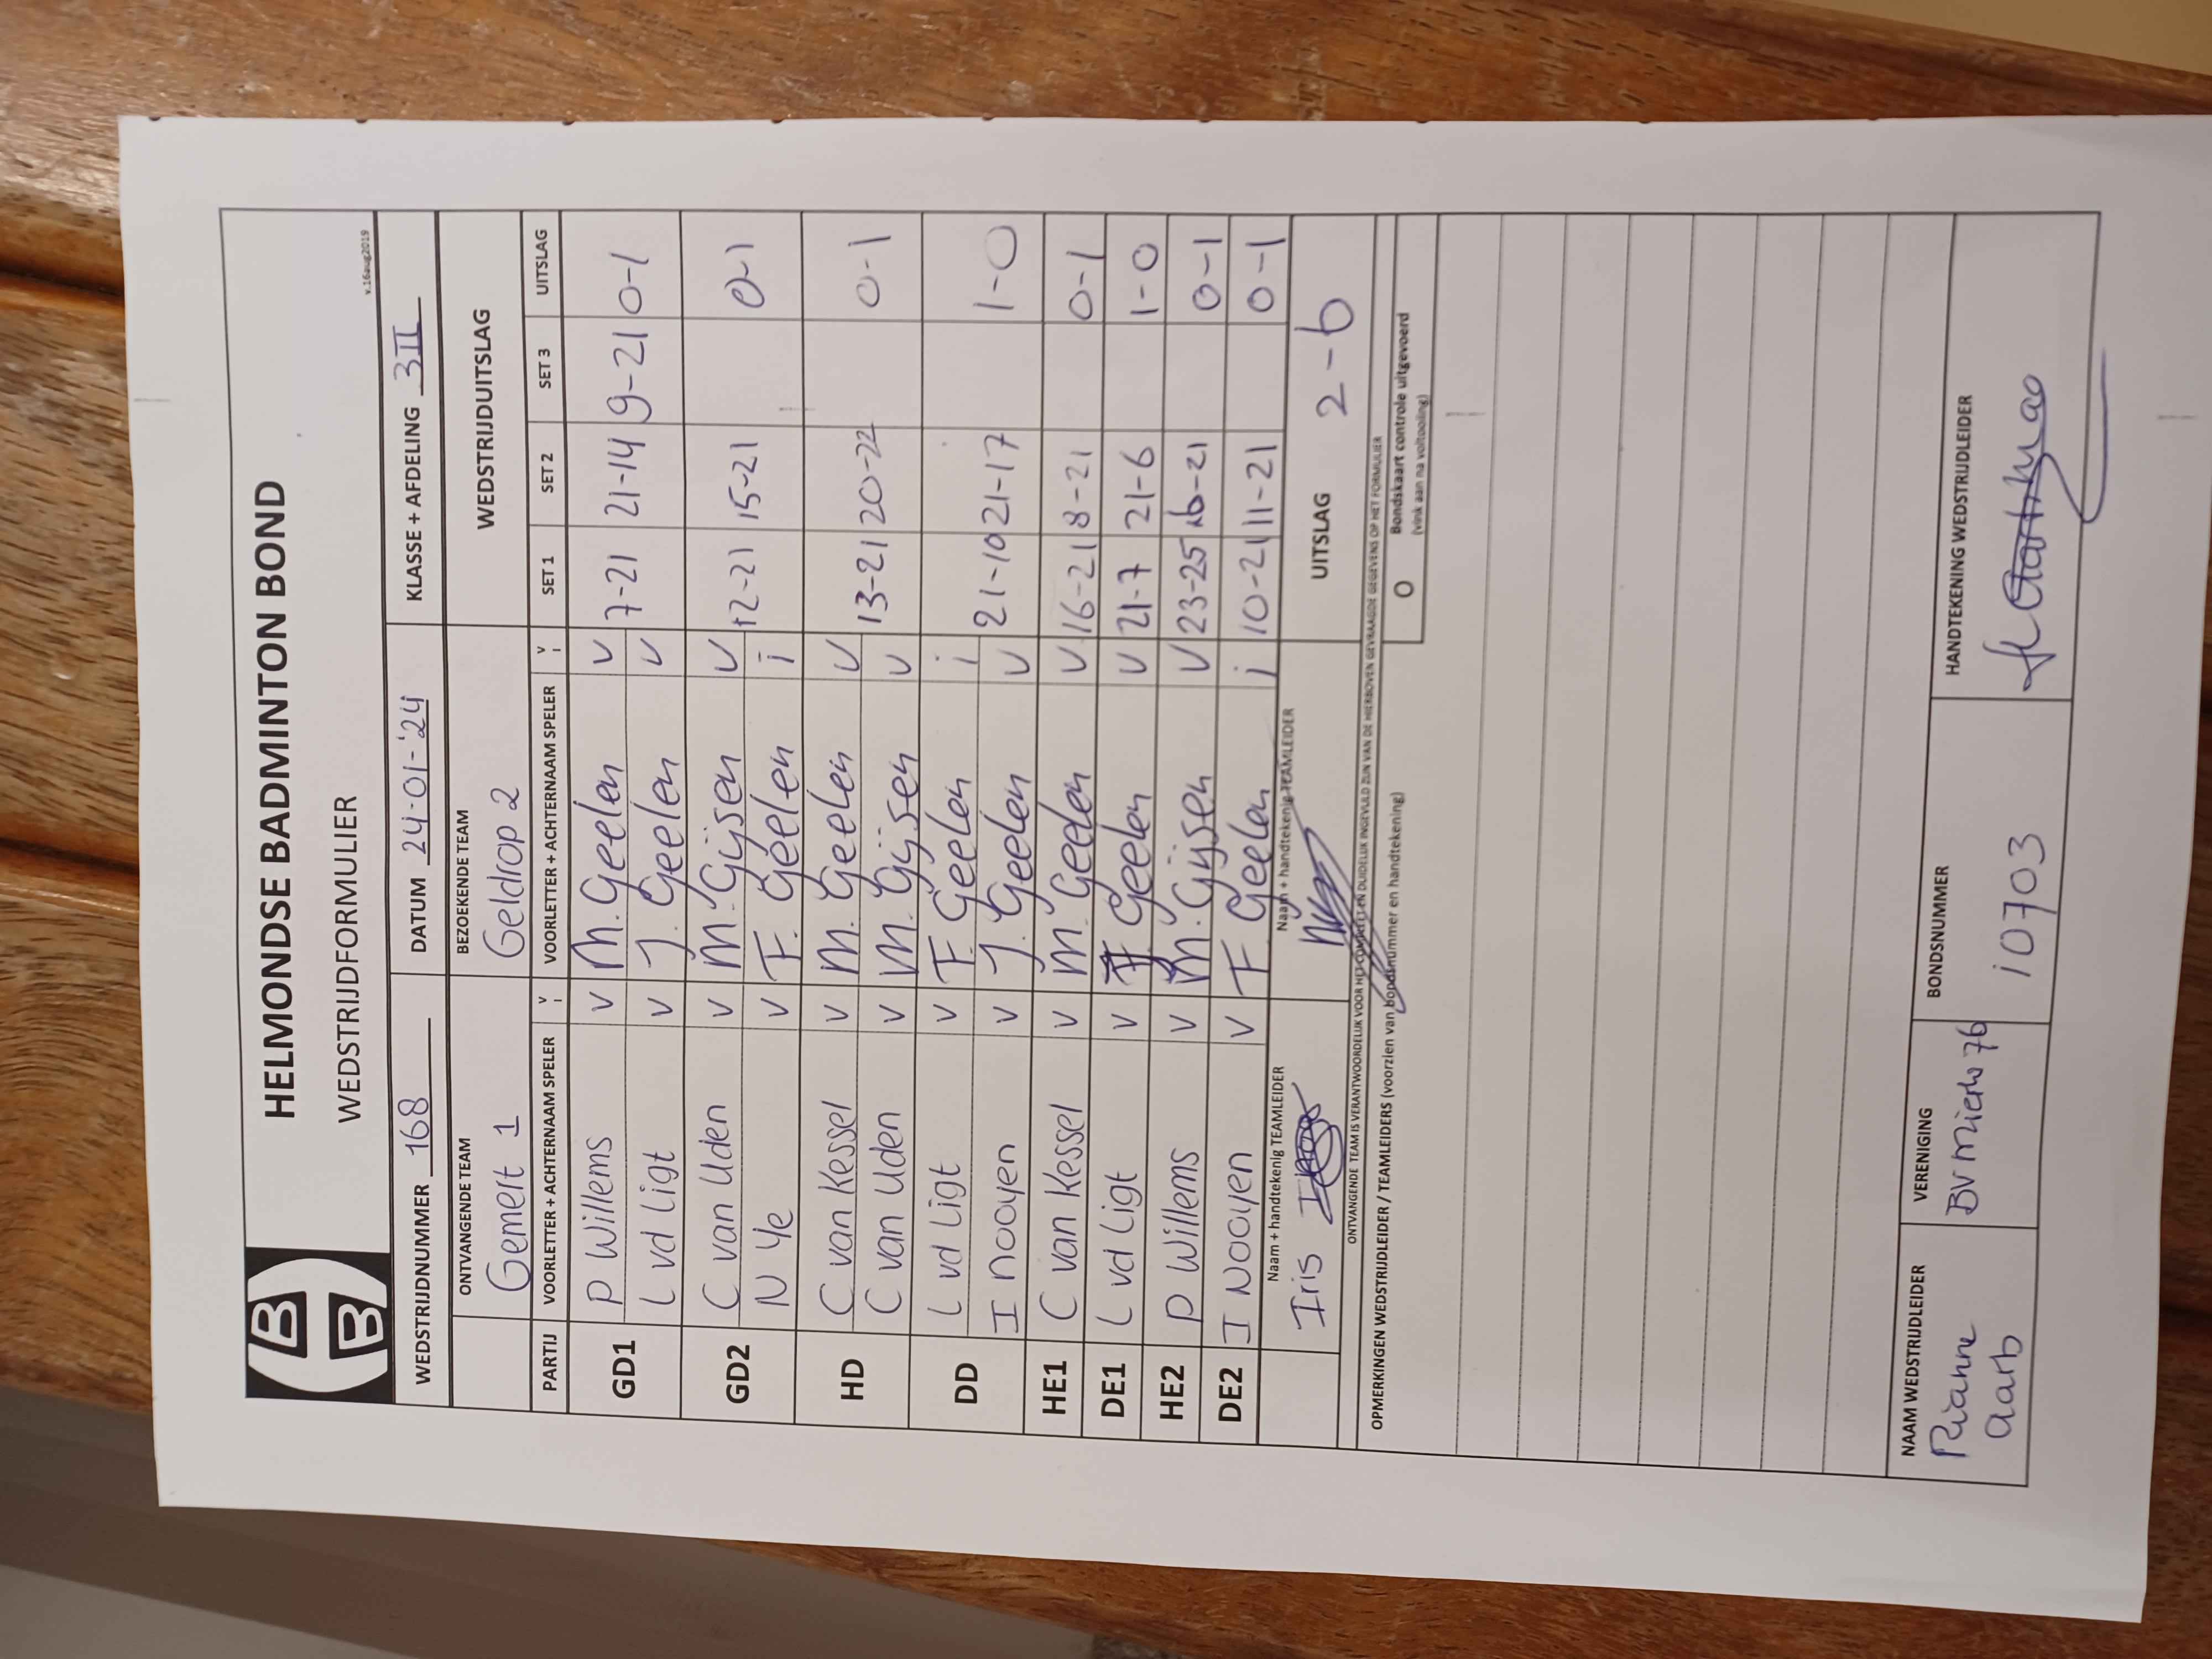 HELMONDSE BADMINTON BOND
WEDSTRIJDFORMULIER
v.16aug2019
WEDSTRIJDNUMMER 168 DATUM 24-01-'24 KLASSE + AFDELING 3II
ONTVANGENDE TEAM BEZOEKENDE TEAM WEDSTRIJDUITSLAG
Gemert 1 Geldrop 2
PARTIJ VOORLETTER + ACHTERNAAM SPELER V I VOORLETTER + ACHTERNAAM SPELER V I SET 1 SET 2 SET 3 UITSLAG
GD1 P Willems V M. Geelen V 7-21 21-14 9-21 0-1
L vd Ligt V J. Geelen V
GD2 C van Uden V M. Gijsen V 12-21 15-21 0-1
N Ye V F. Geelen i
HD C van Kessel V M. Geelen V 13-21 20-22 0-1
C van Uden V M. Gijsen V
DD L vd Ligt V F. Geelen i 21-10 21-17 1-0
I Nooyen V J. Geelen V
HE1 C van Kessel V M. Geelen V 16-21 8-21 0-1
DE1 L vd Ligt V Geelen V 21-7 21-6 1-0
HE2 P Willems V M. Gijsen V 23-25 16-21 0-1
DE2 I Nooyen V F Geelen i 10-21 11-21 0-1
Naam + handtekenig TEAMLEIDER Naam + handtekenig TEAMLEIDER UITSLAG 2-6
Iris
ONTVANGENDE TEAM IS VERANTWOORDELIJK VOOR HET COMPLEET EN DUIDELIJK INGEVULD ZIJN VAN DE HIERBOVEN GEVRAAGDE GEGEVENS OP HET FORMULIER
OPMERKINGEN WEDSTRIJDLEIDER / TEAMLEIDERS (voorzien van bondsnummer en handtekening)
O Bondskaart controle uitgevoerd
(vink aan na voltooiing)
NAAM WEDSTRIJDLEIDER VERENIGING BONDSNUMMER HANDTEKENING WEDSTRIJDLEIDER
Rianne BV Mierlo 76 10703
Aarb